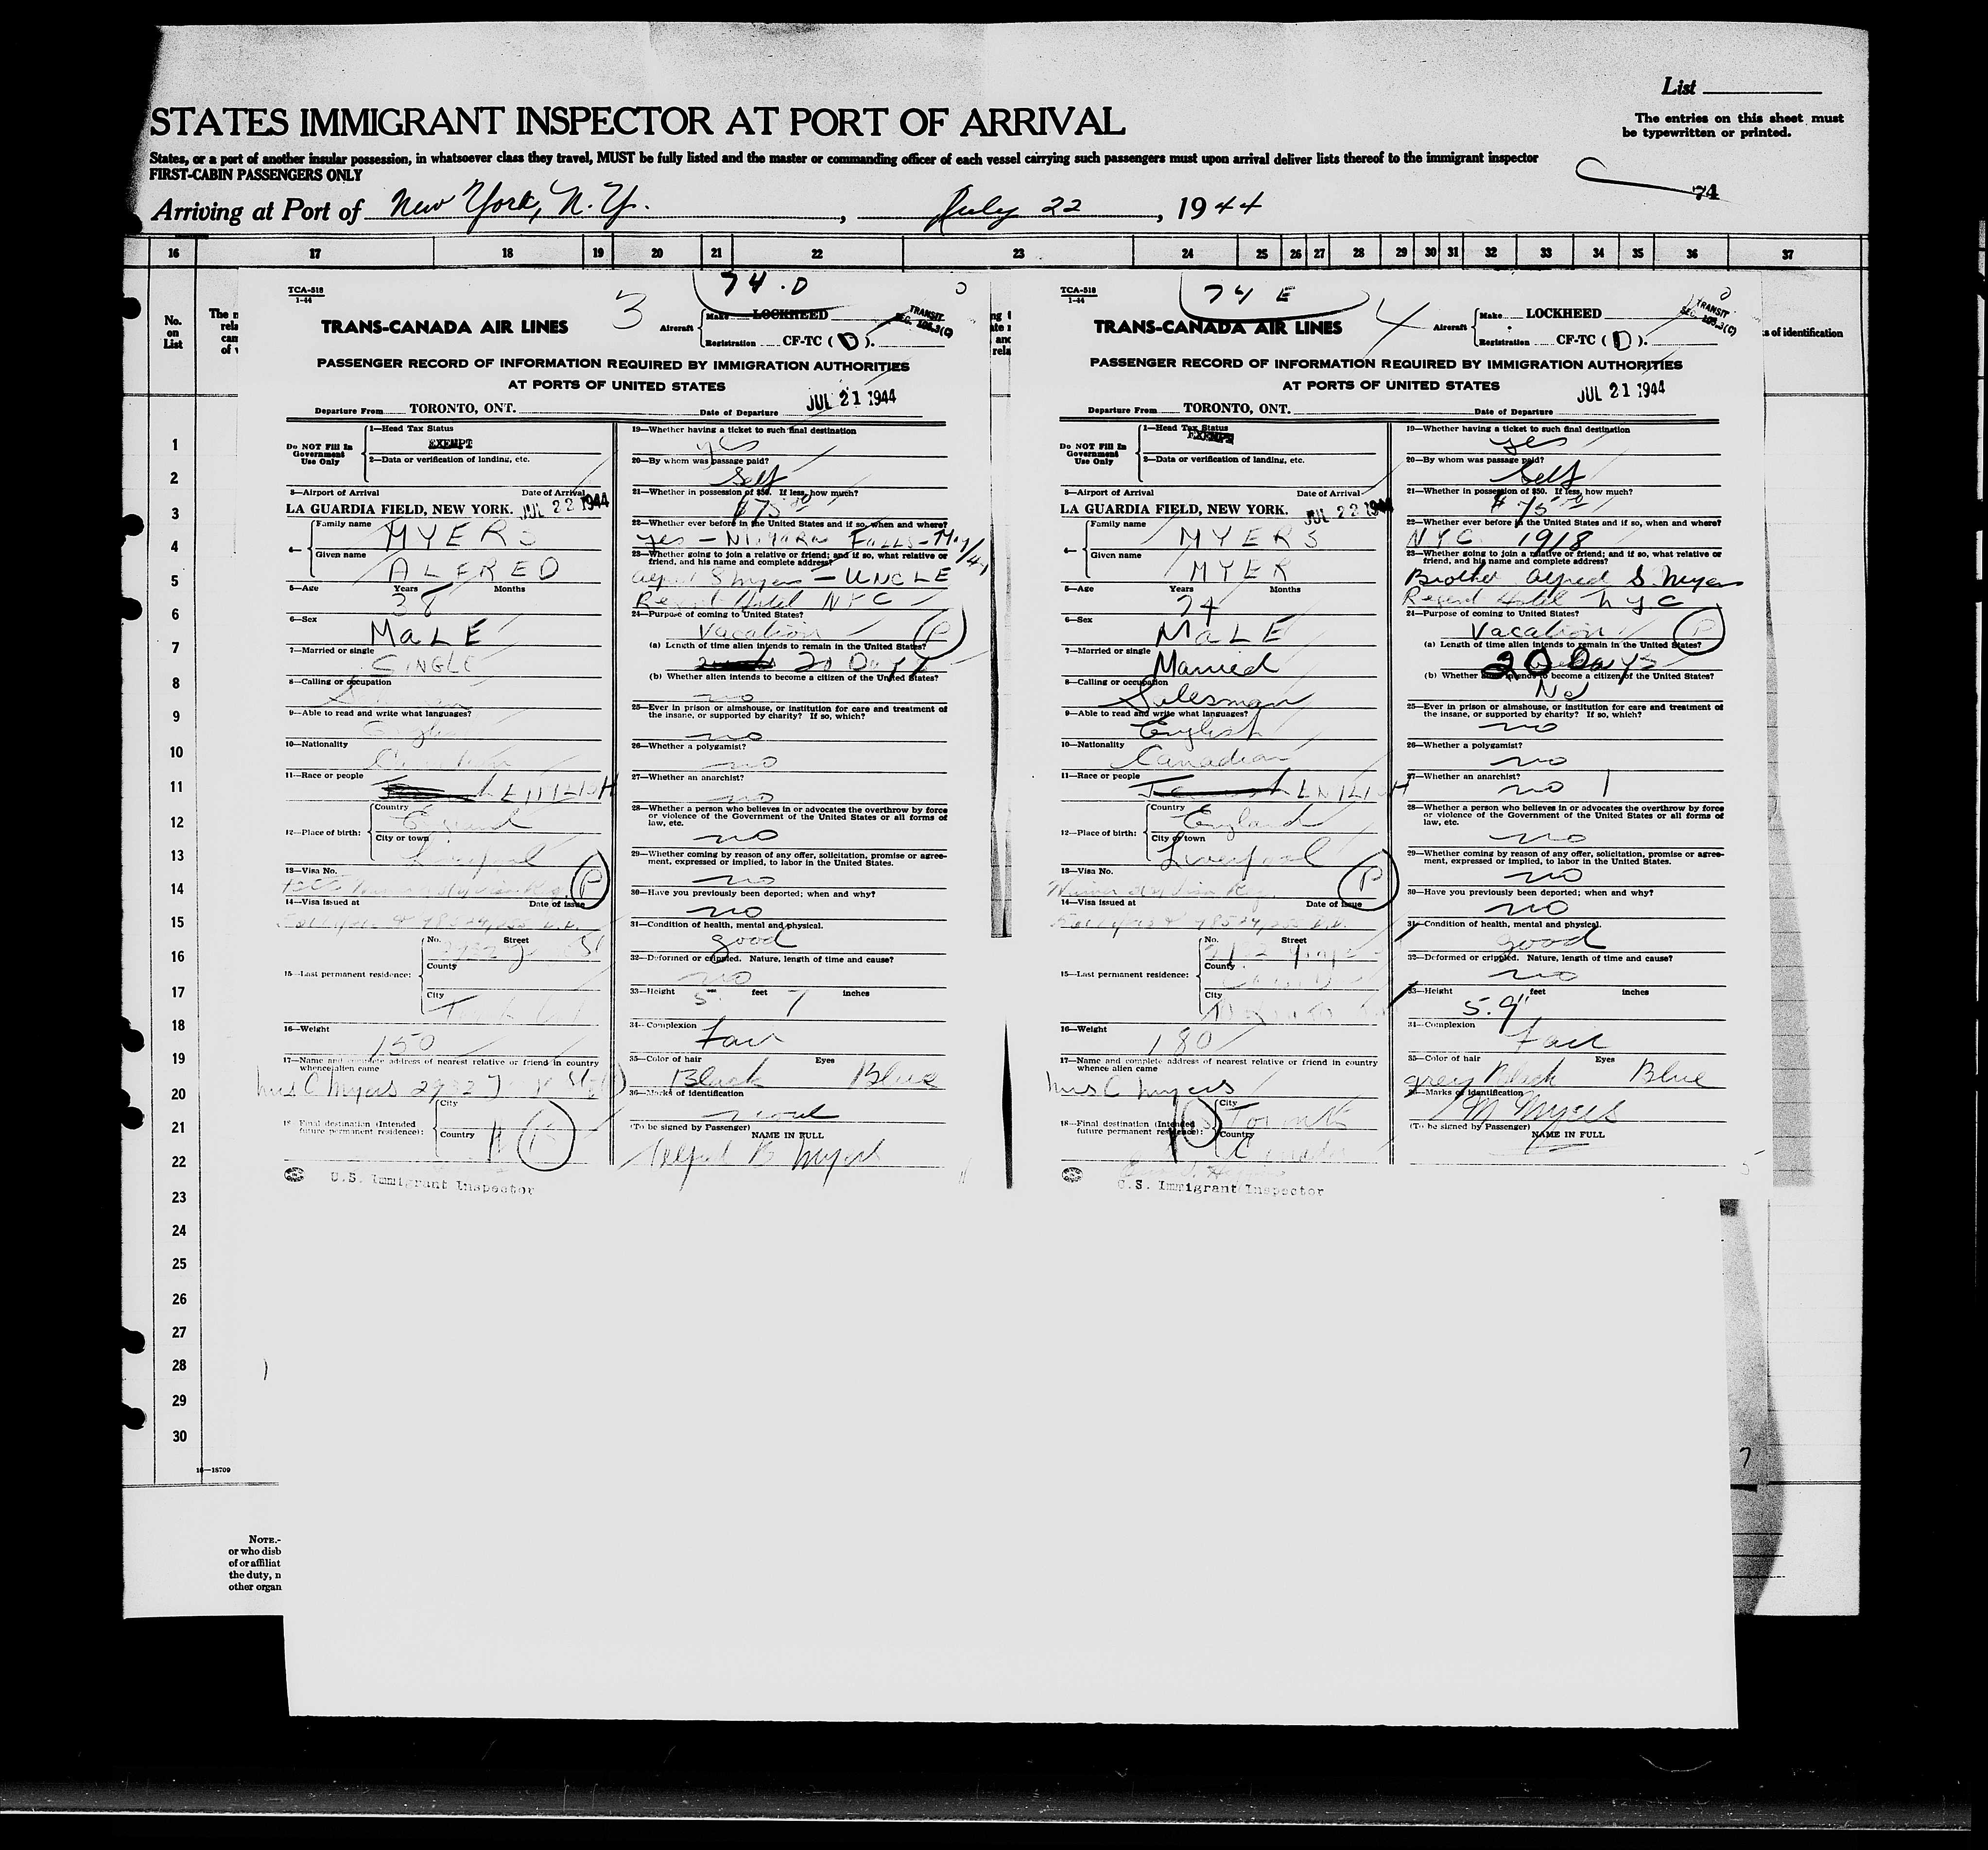 List
The entries on this sheet must
be typewritten or printed.
STATES IMMIGRANT INSPECTOR AT PORT OF ARRIVAL
States, or a port of another insular possession, in whatsoever class they travel, MUST be fully listed and the master or commanding officer of each vessel carrying such passengers must upon arrival deliver lists thereof to the immigrant inspector
FIRST-CABIN PASSENGERS ONLY
74
Arriving at Port of New York, N.Y., July 22, 1944
16 17 18 19 20 21 22 23 24 25 26 27 28 29 30 31 32 33 34 35 36 37
No.
on
List
s of identification
1
2
3
4
5
6
7
8
9
10
11
12
13
14
15
16
17
18
19
20
21
22
23
24
25
26
27
28
29
30
16—18709
NOTE.-
or who disb
of or affiliat
the duty, n
other organ
TCA-518
1-44
3
74.D
TRANS-CANADA AIR LINES
Aircraft
Make LOCKHEED
Registration CF-TC (D).
TRANSIT
PASSENGER RECORD OF INFORMATION REQUIRED BY IMMIGRATION AUTHORITIES
AT PORTS OF UNITED STATES
Departure From TORONTO, ONT. Date of Departure JUL 21 1944
Do NOT Fill In
Government
Use Only
1—Head Tax Status
EXEMPT
2—Data or verification of landing, etc.
3—Airport of Arrival Date of Arrival
LA GUARDIA FIELD, NEW YORK. JUL 22 1944
4—
Family name
MYERS
Given name
ALFRED
5—Age Years Months
38
6—Sex
MALE
7—Married or single
SINGLE
8—Calling or occupation
9—Able to read and write what languages?
10—Nationality
11—Race or people
12—Place of birth:
Country
City or town
Liverpool
13—Visa No.
P
14—Visa issued at Date of issue
15—Last permanent residence:
No. Street
County
City
16—Weight
150
17—Name and complete address of nearest relative or friend in country
whence alien came
Mrs C Myers 2932
18—Final destination (Intended
future permanent residence):
City
Country
U.S. Immigrant Inspector
19—Whether having a ticket to such final destination
yes
20—By whom was passage paid?
Self
21—Whether in possession of $50. If less, how much?
$75.00
22—Whether ever before in the United States and if so, when and where?
yes - NIAGARA FALLS -
23—Whether going to join a relative or friend; and if so, what relative or
friend, and his name and complete address?
Alfred S Myers - UNCLE
Regent Hotel NYC
24—Purpose of coming to United States?
Vacation P
(a) Length of time alien intends to remain in the United States?
20 Days
(b) Whether alien intends to become a citizen of the United States?
no
25—Ever in prison or almshouse, or institution for care and treatment of
the insane, or supported by charity? If so, which?
no
26—Whether a polygamist?
no
27—Whether an anarchist?
no
28—Whether a person who believes in or advocates the overthrow by force
or violence of the Government of the United States or all forms of
law, etc.
no
29—Whether coming by reason of any offer, solicitation, promise or agree-
ment, expressed or implied, to labor in the United States.
no
30—Have you previously been deported; when and why?
no
31—Condition of health, mental and physical.
good
32—Deformed or crippled. Nature, length of time and cause?
no
33—Height 5 feet 7 inches
34—Complexion
Fair
35—Color of hair Eyes
Black Blue
36—Marks of identification
(To be signed by Passenger)
NAME IN FULL
Myers
TCA-518
1-44
74 E
4
TRANS-CANADA AIR LINES
Aircraft
Make LOCKHEED
Registration CF-TC (D).
TRANSIT
PASSENGER RECORD OF INFORMATION REQUIRED BY IMMIGRATION AUTHORITIES
AT PORTS OF UNITED STATES
Departure From TORONTO, ONT. Date of Departure JUL 21 1944
Do NOT Fill In
Government
Use Only
1—Head Tax Status
EXEMPT
2—Data or verification of landing, etc.
3—Airport of Arrival Date of Arrival
LA GUARDIA FIELD, NEW YORK. JUL 22 1944
4—
Family name
MYERS
Given name
MYER
5—Age Years Months
74
6—Sex
MALE
7—Married or single
Married
8—Calling or occupation
Salesman
9—Able to read and write what languages?
English
10—Nationality
Canadian
11—Race or people
12—Place of birth:
Country
England
City or town
Liverpool
13—Visa No.
P
14—Visa issued at Date of issue
15—Last permanent residence:
No. Street
County
City
16—Weight
180
17—Name and complete address of nearest relative or friend in country
whence alien came
Mrs C Myers
18—Final destination (Intended
future permanent residence):
City
Toronto
Country
Canada
U.S. Immigrant Inspector
19—Whether having a ticket to such final destination
yes
20—By whom was passage paid?
Self
21—Whether in possession of $50. If less, how much?
$75.00
22—Whether ever before in the United States and if so, when and where?
NYC 1918
23—Whether going to join a relative or friend; and if so, what relative or
friend, and his name and complete address?
Brother Alfred S. Myers
Regent Hotel NYC
24—Purpose of coming to United States?
Vacation P
(a) Length of time alien intends to remain in the United States?
20 Days
(b) Whether alien intends to become a citizen of the United States?
No
25—Ever in prison or almshouse, or institution for care and treatment of
the insane, or supported by charity? If so, which?
no
26—Whether a polygamist?
no
27—Whether an anarchist?
no
28—Whether a person who believes in or advocates the overthrow by force
or violence of the Government of the United States or all forms of
law, etc.
no
29—Whether coming by reason of any offer, solicitation, promise or agree-
ment, expressed or implied, to labor in the United States.
no
30—Have you previously been deported; when and why?
no
31—Condition of health, mental and physical.
good
32—Deformed or crippled. Nature, length of time and cause?
no
33—Height feet inches
5.9"
34—Complexion
Fair
35—Color of hair Eyes
grey Black Blue
36—Marks of identification
M Myers
(To be signed by Passenger)
NAME IN FULL